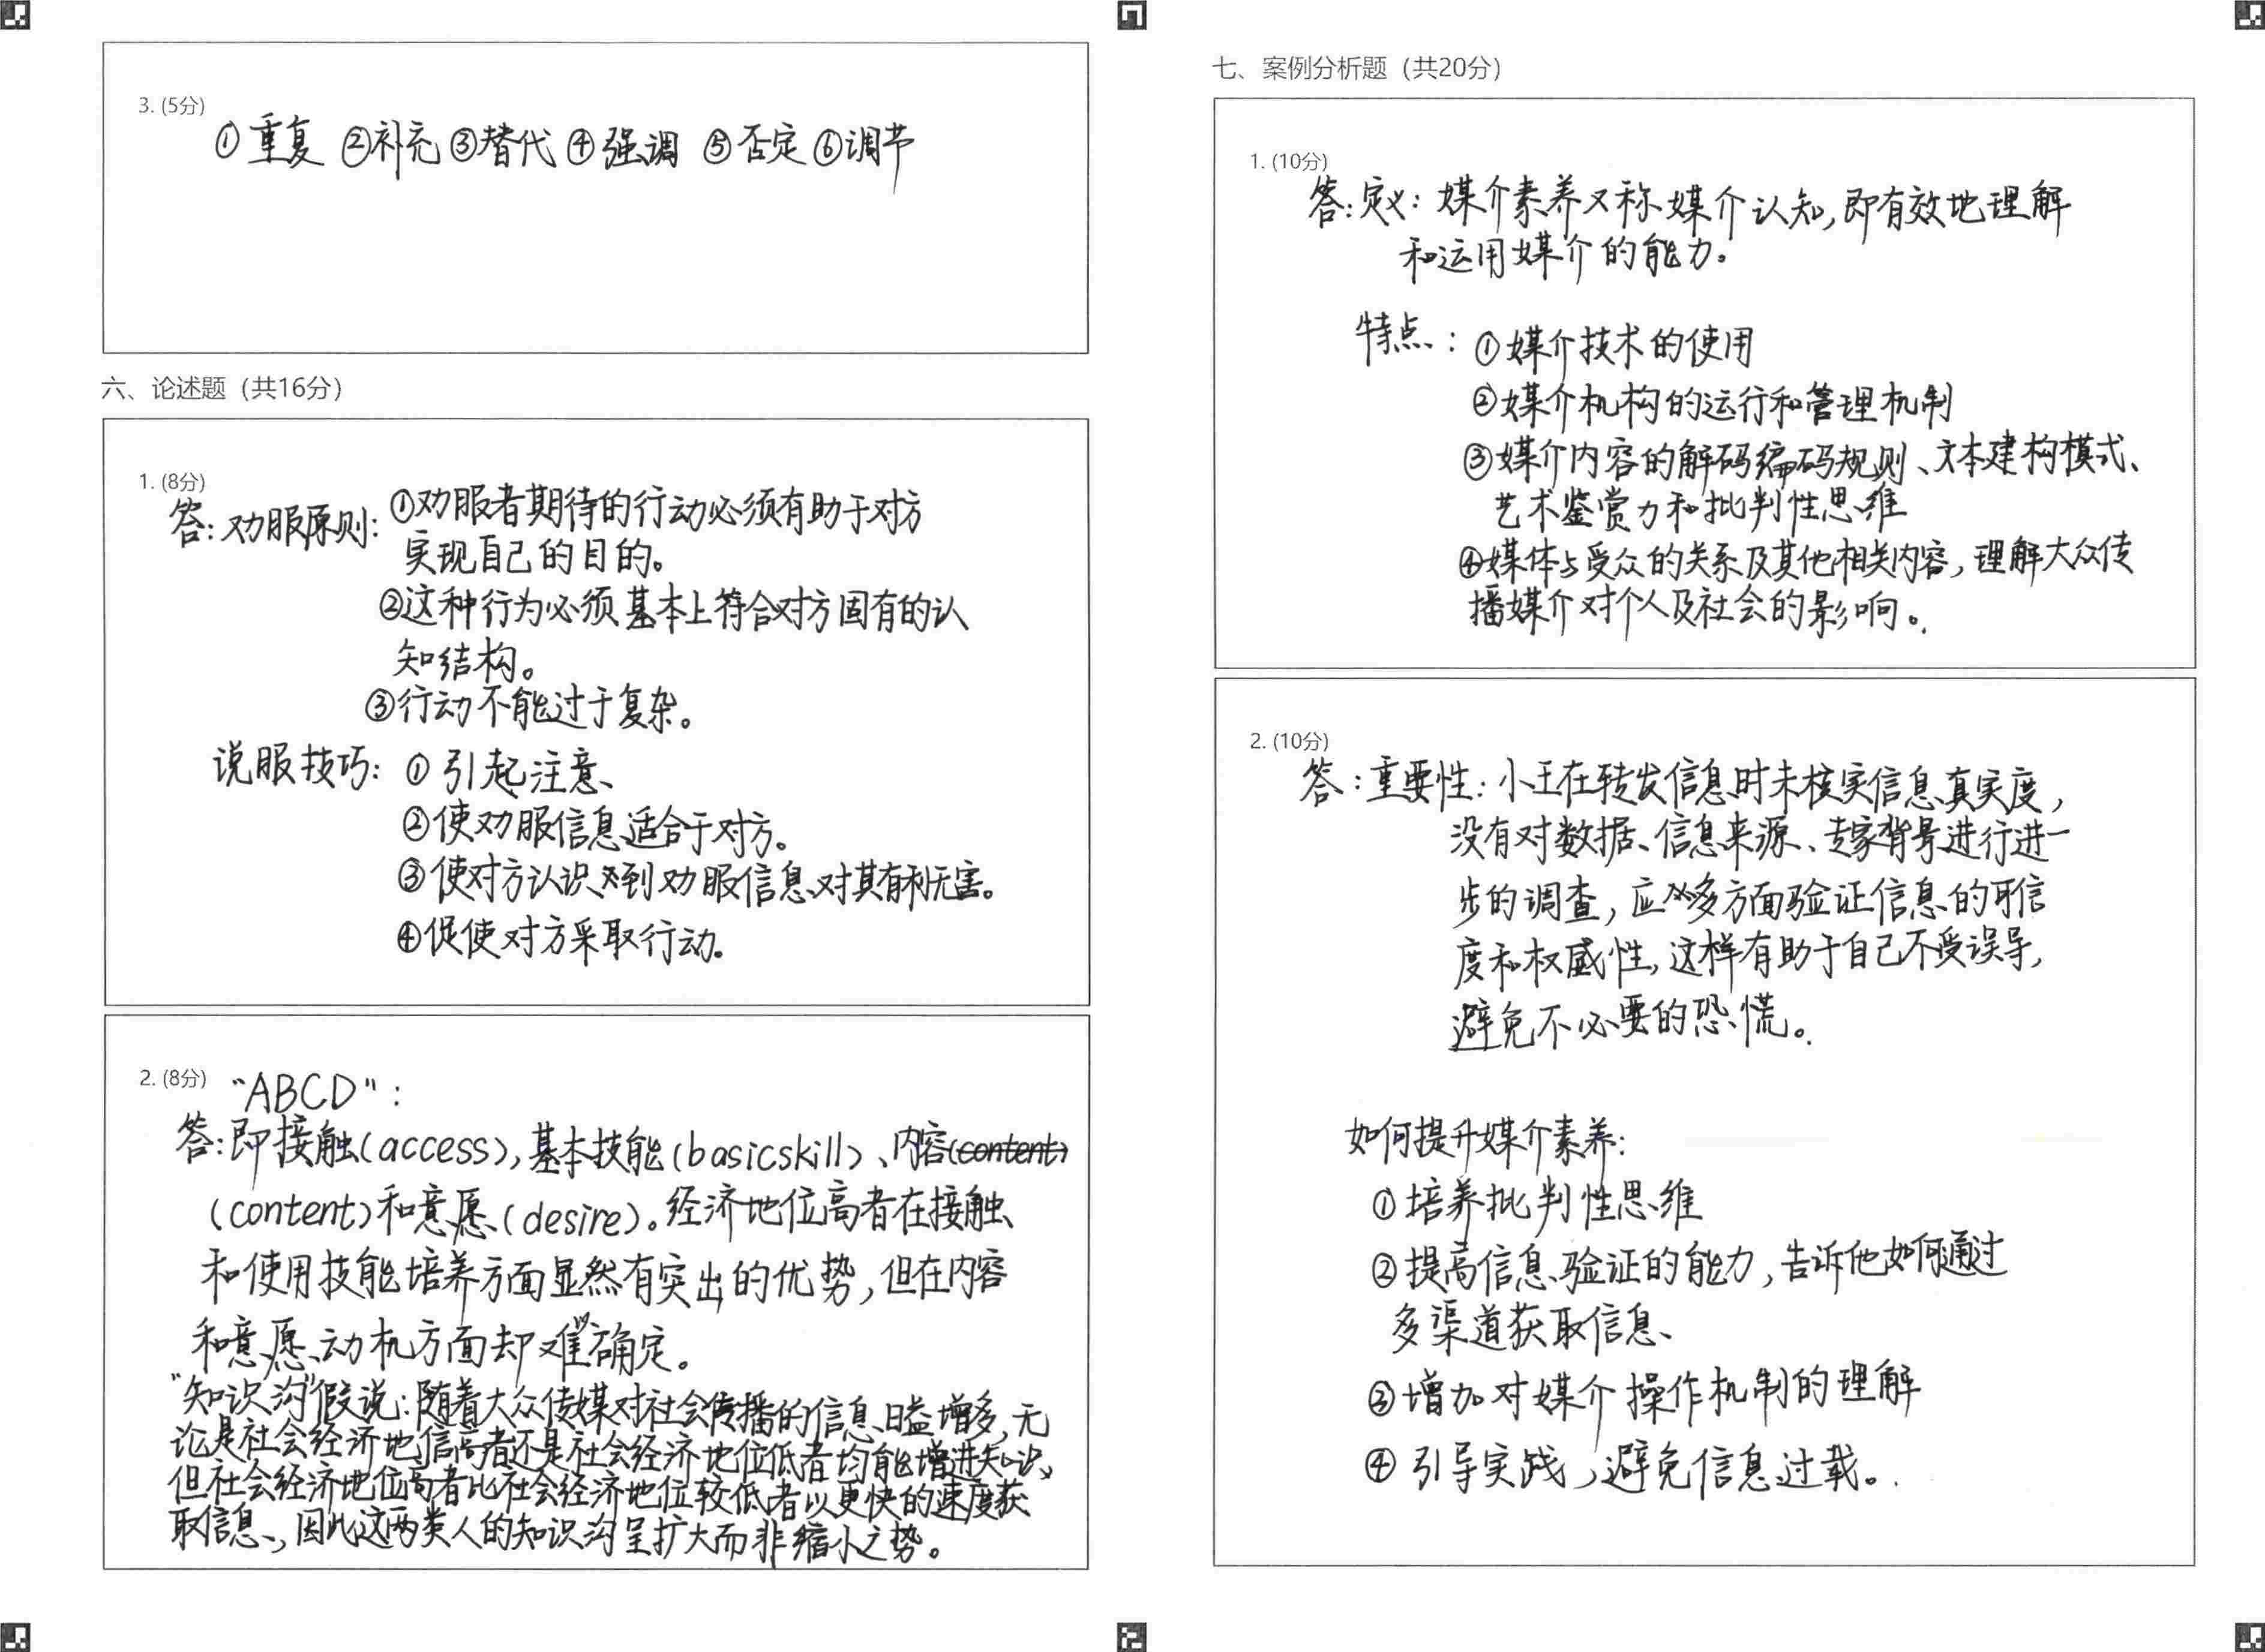 3. (5分)
①重复 ②补充 ③替代 ④强调 ⑤否定 ⑥调节
六、论述题（共16分）
1. (8分)
答: 劝服原则: ①劝服者期待的行动必须有助于对方
实现自己的目的。
②这种行为必须基本上符合对方固有的认
知结构。
③行动不能过于复杂。
说服技巧: ①引起注意
②使劝服信息适合于对方。
③使对方认识到劝服信息对其有利无害。
④促使对方采取行动。
2. (8分) "ABCD":
答: 即接触(access), 基本技能(basicskill)、内容(content)
(content)和意愿(desire)。经济地位高者在接触
和使用技能培养方面显然有突出的优势, 但在内容
和意愿、动机方面却难确定。
"知识沟"假说: 随着大众传媒对社会传播的信息日益增多, 无
论是社会经济地信高者还是社会经济地位低者均能增进知识,
但社会经济地位高者比社会经济地位较低者以更快的速度获
取信息, 因此这两类人的知识沟呈扩大而非缩小之势。
七、案例分析题（共20分）
1. (10分)
答: 定义: 媒介素养又称媒介认知, 即有效地理解
和运用媒介的能力。
特点: ①媒介技术的使用
②媒介机构的运行和管理机制
③媒介内容的解码编码规则、文本建构模式、
艺术鉴赏力和批判性思维
④媒体与受众的关系及其他相关内容, 理解大众传
播媒介对个人及社会的影响。
2. (10分)
答: 重要性: 小王在转发信息时未核实信息真实度,
没有对数据、信息来源、专家背景进行进一
步的调查, 应多方面验证信息的可信
度和权威性, 这样有助于自己不受误导,
避免不必要的恐慌。
如何提升媒介素养:
①培养批判性思维
②提高信息验证的能力, 告诉他如何通过
多渠道获取信息
③增加对媒介操作机制的理解
④引导实战, 避免信息过载。